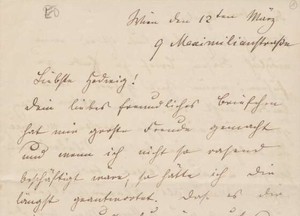 Wien den 13ten März
9 Maximilianstraße
Liebste Hedwig!
Dein liebes freundliches Briefchen
hat mir große Freude gemacht
und wenn ich nicht so rasend
beschäftigt ware, so hätte ich Dir
längst geantwortet. Daß es der